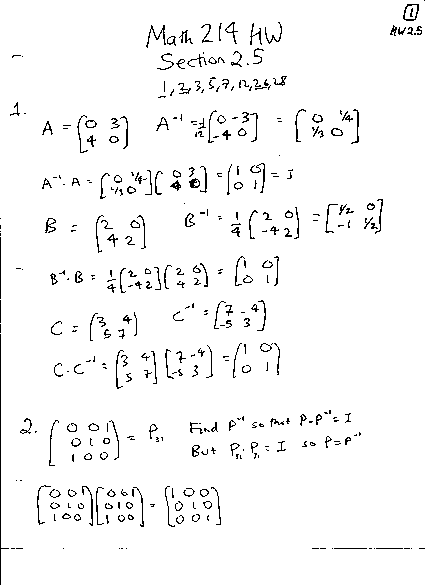 ①
HW 2.5
Math 214 HW
Section 2.5
1, 2, 3, 5, 7, 12, 26, 28
1.
A = [0 3; 4 0] A⁻¹ = 1/12 [0 -3; -4 0] = [0 1/4; 1/3 0]
A⁻¹·A = [0 1/4; 1/3 0] [0 3; 4 0] = [1 0; 0 1] = I
B = [2 0; 4 2] B⁻¹ = 1/4 [2 0; -4 2] = [1/2 0; -1 1/2]
B⁻¹·B = 1/4 [2 0; -4 2] [2 0; 4 2] = [1 0; 0 1]
C = [3 4; 5 7] C⁻¹ = [7 -4; -5 3]
C·C⁻¹ = [3 4; 5 7] [7 -4; -5 3] = [1 0; 0 1]
2. [0 0 1; 0 1 0; 1 0 0] = P₃₁ Find P⁻¹ so that P·P⁻¹ = I
But P₃₁·P₃₁ = I so P = P⁻¹
[0 0 1; 0 1 0; 1 0 0] [0 0 1; 0 1 0; 1 0 0] = [1 0 0; 0 1 0; 0 0 1]